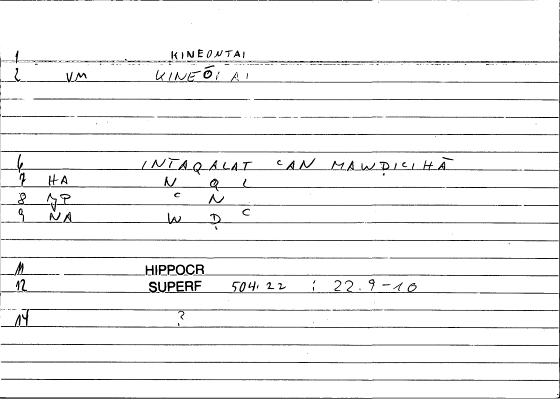 1 KINEONTAI
2 VM KINEŌ AI
6 INTAQALAT ᶜAN MAWḌIᶜIHĀ
7 HA N Q L
8 ᶜ N
9 NA W Ḍ ᶜ
11 HIPPOCR
12 SUPERF 504.22 ; 22.9-10
14 ?